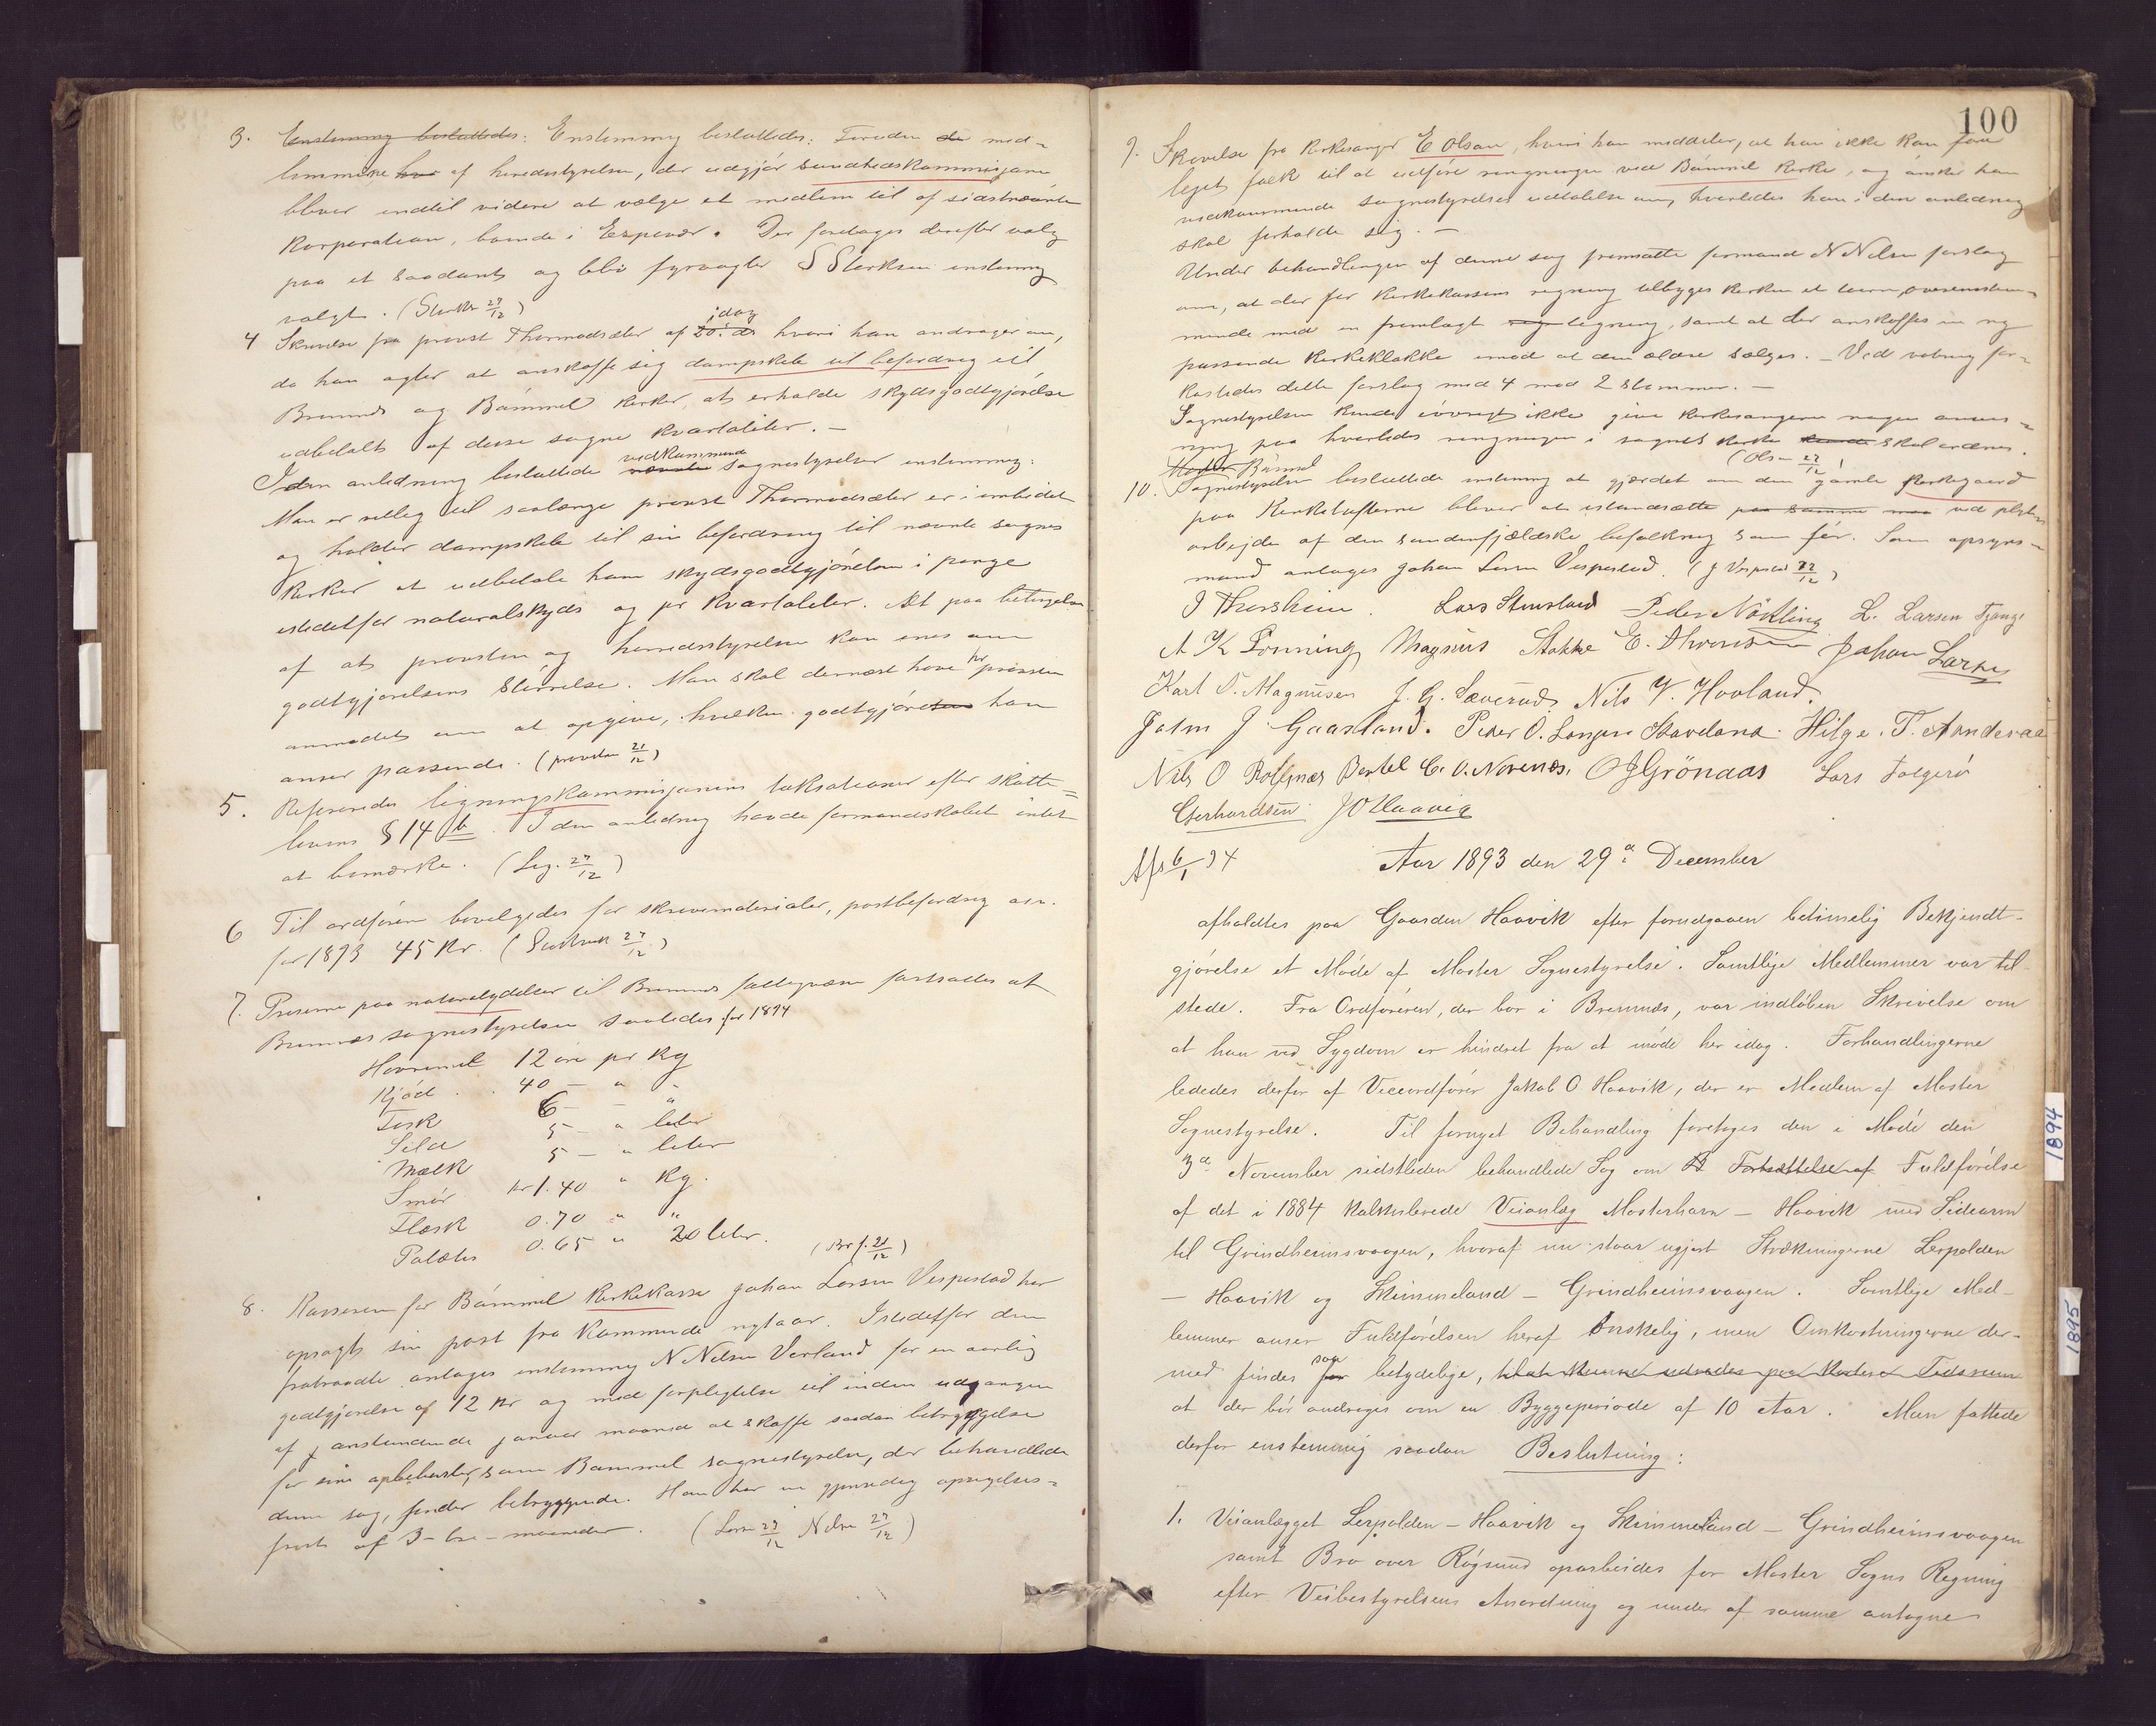 3. Enstemmig besluttedes: Enstemmig besluttedes: Foruden de med-
lemmerne hvor af herredsstyrelsen, der udgjør sundhedskommisjonen
bliver indtil videre at vælge et medlem til af sidstnævnte
korporation, boende i Espevær. Der foretoges derefter valg
paa et saadant og blev fyrvogter S Størksen enstemmig
valgt. (Størks 27/12)
4 Skrivelse fra provst Thormodsæter af 20. ds idag hvori han andrager om,
da han agter at anskaffe sig dampskib til befordring til
Bremnes og Bømmel kirker, at erholde skydsgodtgjørelse
udbetalt af disse sogne kvartaliter. —
I den anledning besluttede nævnte vedkommende sognestyrelser enstemmig:
Man er villig til saalænge provst Thormodsæter er i embedet
og holder dampskib til sin befordring til nævnte sognes
kirker at udbetale ham skydsgodtgjørelsen i penge
istedetfor naturalskyds og pr kvartaliter. Alt paa betingelse
af at provsten og herredsstyrelsen kan enes om
godtgjørelsens størrelse. Man skal dernæst have hr provsten
anmodet om at opgive, hvilken godtgjørelse han
anser passende. (provsten 21/12)
5. Refereredes ligningskommisjonens taksationer efter skatte-
lovens § 14 b. I den anledning havde formandskabet intet
at bemærke. (Lig. 27/12)
6 Til ordføren bevilgedes for skrivematerialer, postbefordring osv.
for 1893 45 kr. ( 27/12)
7. Priserne paa naturalydelser til Bremnes fattigvæsen fastsattes af
Bremnes sognestyrelse saaledes for 1894
Havremel 12 øre pr kg
Kjød . . 40 — " "
Fisk 6 — — "
Sild 5 — " liter
Mælk 5 — " liter
Smør kr 1.40 " Kg.
Flæsk 0.70 " "
Potetes 0.65 " 20 liter. (Br f. 21/12)
8. Kassereren for Bømmel kirkekasse Johan Larsen Vespestad har
opsagt sin post fra kommende nytaar. Istedetfor den
fratraadte antoges enstemmig N Nilsen Vorland for en aarlig
godtgjørelse af 12 kr og med forpligtelse til inden udgangen
af j anstundende januar maaned at skaffe saadan betryggelse
for sine opbebørsler, som Bømmel sognestyrelse, der behandlede
denne sag, finder betryggende. Han har en gjensidig opsigelses-
frist af 3-tre-maaneder. (Larsen 27/12 Nilsen 27/12)
100
9. Skrivelse fra kirkesanger E Olsen, hvori han meddeler, at han ikke kan faa
leget folk til at udføre ringningen ved Bømmel kirke, og ønsker han
vedkommende sognestyrelses udtalelse om, hvorledes han i den anledning
skal forholde sig. —
Under behandlingen af denne sag fremsatte formand N Nilsen forslag
om, at der for kirkekassens regning tilbygges kirken et taarn, overensstem-
mende med en fremlagt tegning, samt at der anskaffes en ny
passende kirkeklokke imod at den ældre sælges. — Ved votering for-
kastedes dette forslag med 4 mod 2 stemmer. —
Sognestyrelsen kunde iøvrigt ikke give kirkesangeren nogen anvis-
ning paa hvorledes ringningen i sognets kirke kunde skal ordnes.
(Olsen 27/12)
10. Moster Bømmel Sognestyrelsen besluttede enstemmig at gjærdet om den gamle kirkegaard
paa Kirketufterne bliver at istandsætte paa samme maa ved pligts-
arbejde af den søndenfjældske befolkning som før. Som opsyns-
mand antages Johan Larsen Vespestad. (J Vespestad 27/12)
I Thorsheim. Lars Stensland Peder Nökling L. Larsen Tjong.
A K Lønning Magnus Stokke E. Thoresen Johan Larsen
Karl T. Magnusen J. G. Sæverud. Nils V. Hovland.
John J. Gaasland. Peter O. Langser Stavland. Hilge. T. Aandevae
Nils O Rolfsnæs Bertel C. O. Norenæs. O J Grönaas Lars Folgerö
Gerhardsen J O Haavig
Afs 6/1 94 Aar 1893 den 29de December
afholdtes paa Gaarden Haavik efter forudgaaen betimelig Bekjendt-
gjørelse et Møde af Moster Sognestyrelse. Samtlige Medlemmer var til-
stede. Fra Ordføreren, der bor i Bremnes, var indløben Skrivelse om
at han ved Sygdom er hindret fra at møde her idag. Forhandlingerne
lededes derfor af Viceordfører Jakob O. Haavik, der er Medlem af Moster
Sognestyrelse. Til fornyet Behandling foretoges den i Møde den
3de November sidstleden behandlede Sag om Fortsættelse af Fuldførelse
af det i 1884 kalkulerede Veianlæg Mosterhavn — Haavik med Sidearm
til Grindheimsvaagen, hvoraf nu staar ugjort Strækningerne Lerpolden
— Haavik og Skimmeland — Grindheimsvaagen. Samtlige Med-
lemmer anser Fuldførelsen heraf ønskelig, men Omkostningerne der-
med findes for saa betydelige, til at kunne udredes paa kortere Tidsrum
at der bør andrages om en Byggeperiode af 10 Aar. Man fattede
derfor enstemmig saadan Beslutning:
1. Veianlægget Lerpolden — Haavik og Skimmeland — Grindheimsvaagen
samt Bro over Røgsund oparbeides for Moster Sogns Regning
efter Veibestyrelsens Anordning og under af samme antagne
1894
1895